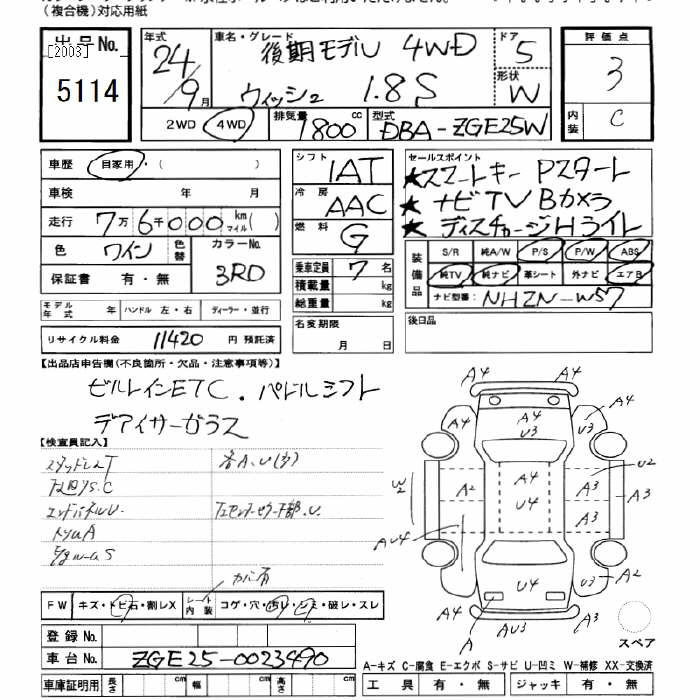 （複合機）対応用紙
出品No.
[2003]
5114
年式 24 / 9 月
車名・グレード 後期モデル 4WD
ウィッシュ 1.8S
ドア 5
形状 W
評価点 3
内装 C
2WD 4WD 排気量 1800 cc 型式 DBA-ZGE25W
車歴 自家用・（ ）
車検 年 月
走行 7万6千000 km マイル（ ）
色 ワイン 色替 カラーNo. 3RD
保証書 有・無
モデル年式 年 ハンドル 左・右 ディーラー・並行
リサイクル料金 11420 円 預託済
シフト 1AT
冷房 AAC
燃料 G
乗車定員 7 名
積載量 kg
総重量 kg
名変期限 月 日
セールスポイント
★スマートキー Pスタート
★ナビTV Bカメラ
★ディスチャージHライト
装備品 S/R 純A/W P/S P/W ABS
純TV 純ナビ 革シート 外ナビ エアB
ナビ型番: NHZN-W57
後日品
【出品店申告欄（不良箇所・欠品・注意事項等）】
ビルトインETC．パドルシフト
デアイサーガラス
【検査員記入】
スタッドレスT
各A.U(多)
エンドパネルU.
トノムA
カバー有
FW キズ・トビ石・割レX シート内装 コゲ・穴・汚レ・シミ・破レ・スレ
登録No.
車台No. ZGE25-0023490
車庫証明用 長さ cm 幅 cm 高さ cm
A4 A4
A4 U3 A4 U3
W2 A2 A4 U4 A3 U2 A3 A3
AU4
U4 U3 A2
A4 A AU3 A3
スペア
A-キズ C-腐食 E-エクボ S-サビ U-凹ミ W-補修 XX-交換済
工具 有・無 ジャッキ 有・無